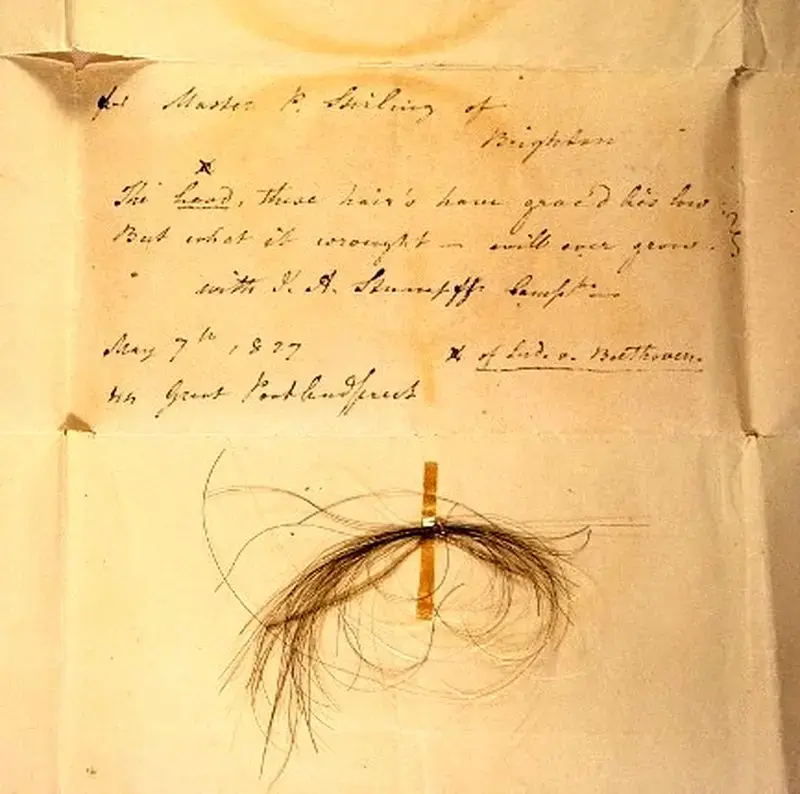 for Master P. Stirling of
Brighton
x
The head, these hair's have grac'd lies low
But what it wrought — will ever grow.
with J. A. Stumpff's Compts
May 7th 1827
Great Portlandstreet
x of Lud. v. Beethoven.